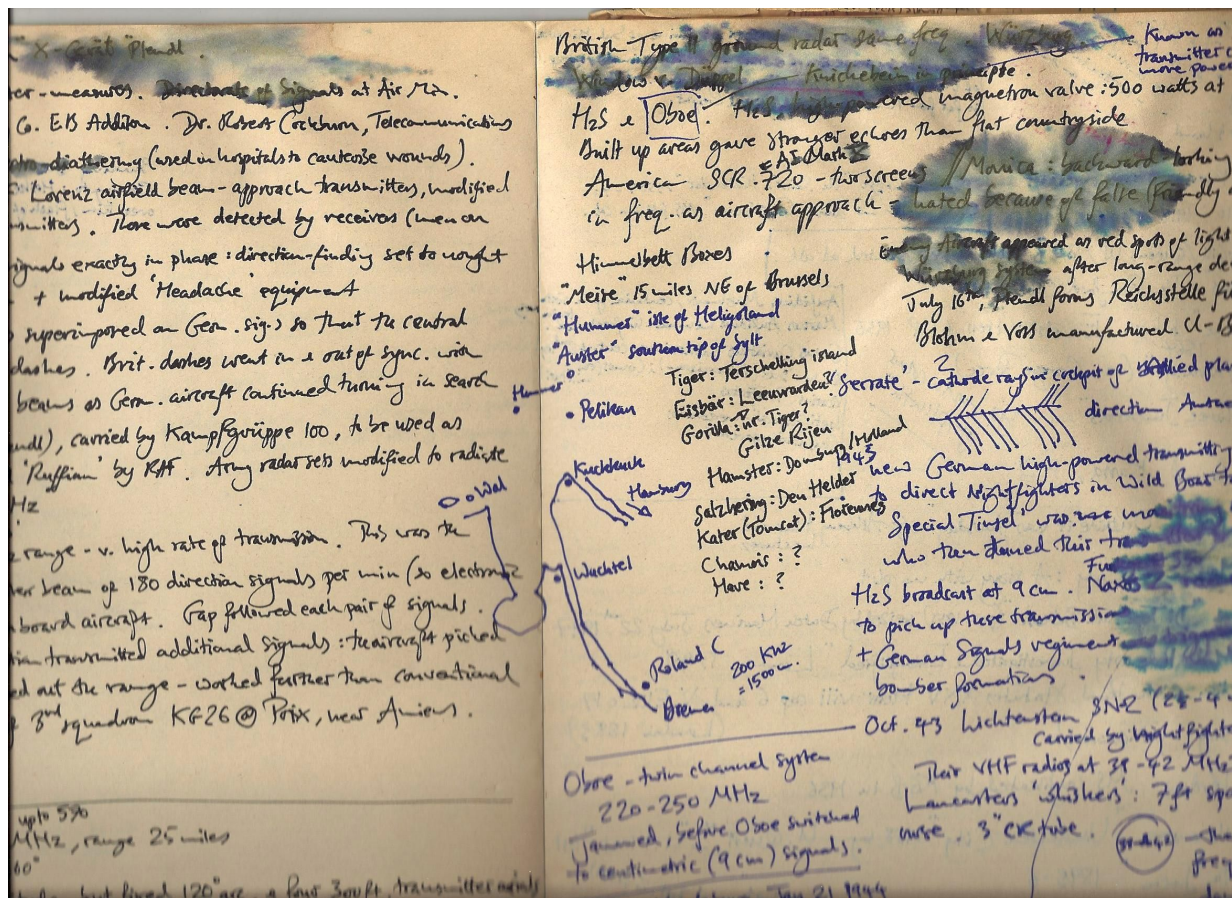 X-Gerät "Plendl.
er-measures. Directorate of Signals at Air Min.
Co. EB Addison. Dr. Robert Cockburn, Telecommunications
diathermy (used in hospitals to cauterise wounds).
Lorenz airfield beam-approach transmitters, modified
smitters. These were detected by receivers (men on
signals exactly in phase: direction-finding set to nought
+ modified 'Headache' equipment
superimposed on Germ. sigs so that the central
dashes. Brit. dashes went in & out of sync. with
beams as Germ. aircraft continued turning in search
endl), carried by Kampfgrüppe 100, to be used as
'Ruffian' by RAF. Army radar sets modified to radiate
Hz
range - v. high rate of transmission. This was the
er beam of 180 direction signals per min (so electronic
board aircraft. Gap followed each pair of signals.
transmitted additional signals: the aircraft picked
ed out the range - worked further than conventional
3rd squadron KG26 @ Poix, near Amiens.
up to 5%
MHz, range 25 miles
60°
but fixed 120° arc
British Type 11 ground radar same freq. Würzburg
Known as
transmitter
more power
Window v. Düppel Knickebein in principle.
H2S & Oboe. H2S. high-powered magnetron valve: 500 watts at
Built up areas gave stronger echoes than flat countryside
= AI Mark X
America SCR.720 - two screens
// Monica: backward looking
in freq. as aircraft approach - hated because of false (friendly
Himmelbett Boxes
Enemy Aircraft appeared as red spots of light
Würzburg system after long-range de
"Meise" 15 miles NE of Brussels
July 16th, Plendl forms Reichsstelle für
"Hummer" isle of Heligoland
Blohm & Voss manufactured U-B
"Auster" southern tip of Sylt
Tiger: Terschelling island
Eisbär: Leeuwarden?
Gorilla: nr. Tiger?
Gilze Rijen
Hamster: Domburg/Holland
Salzhering: Den Helder
Kater (Tomcat): Florennes
Chamois: ?
Hare: ?
'Serrate' - cathode rays in cockpit of Allied pla
direction
1943
new German high-powered transmitting
to direct nightfighters in Wild Boar
'Special Tinsel' was
who then jammed this
H2S broadcast at 9 cm. Naxos
to pick up these transmission
+ German Signals regiment
bomber formations.
Hummer
Pelikan
Knickebein
Hamburg
Wal
Wachtel
Roland C
200 KHz
= 1500 m.
Bremen
Oct. 43 Lichtenstein SN-2
carried by nightfighte
Their VHF radios at 38-42 MHz
Lancasters 'whiskers': 7ft
nose. 3" CR tube.
38-42
Oboe - twin channel system
220-250 MHz
Jammed, before Oboe switched
to centimetric (9 cm) signals.
Jan 21 1944